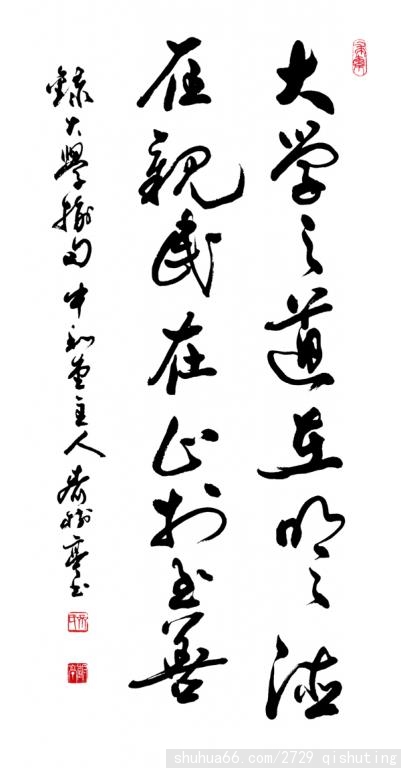 大学之道在明々德
在親民在止於至善
錄大學摘句中和堂主人齐樹亭书
shuhua66.com/2729 qishuting